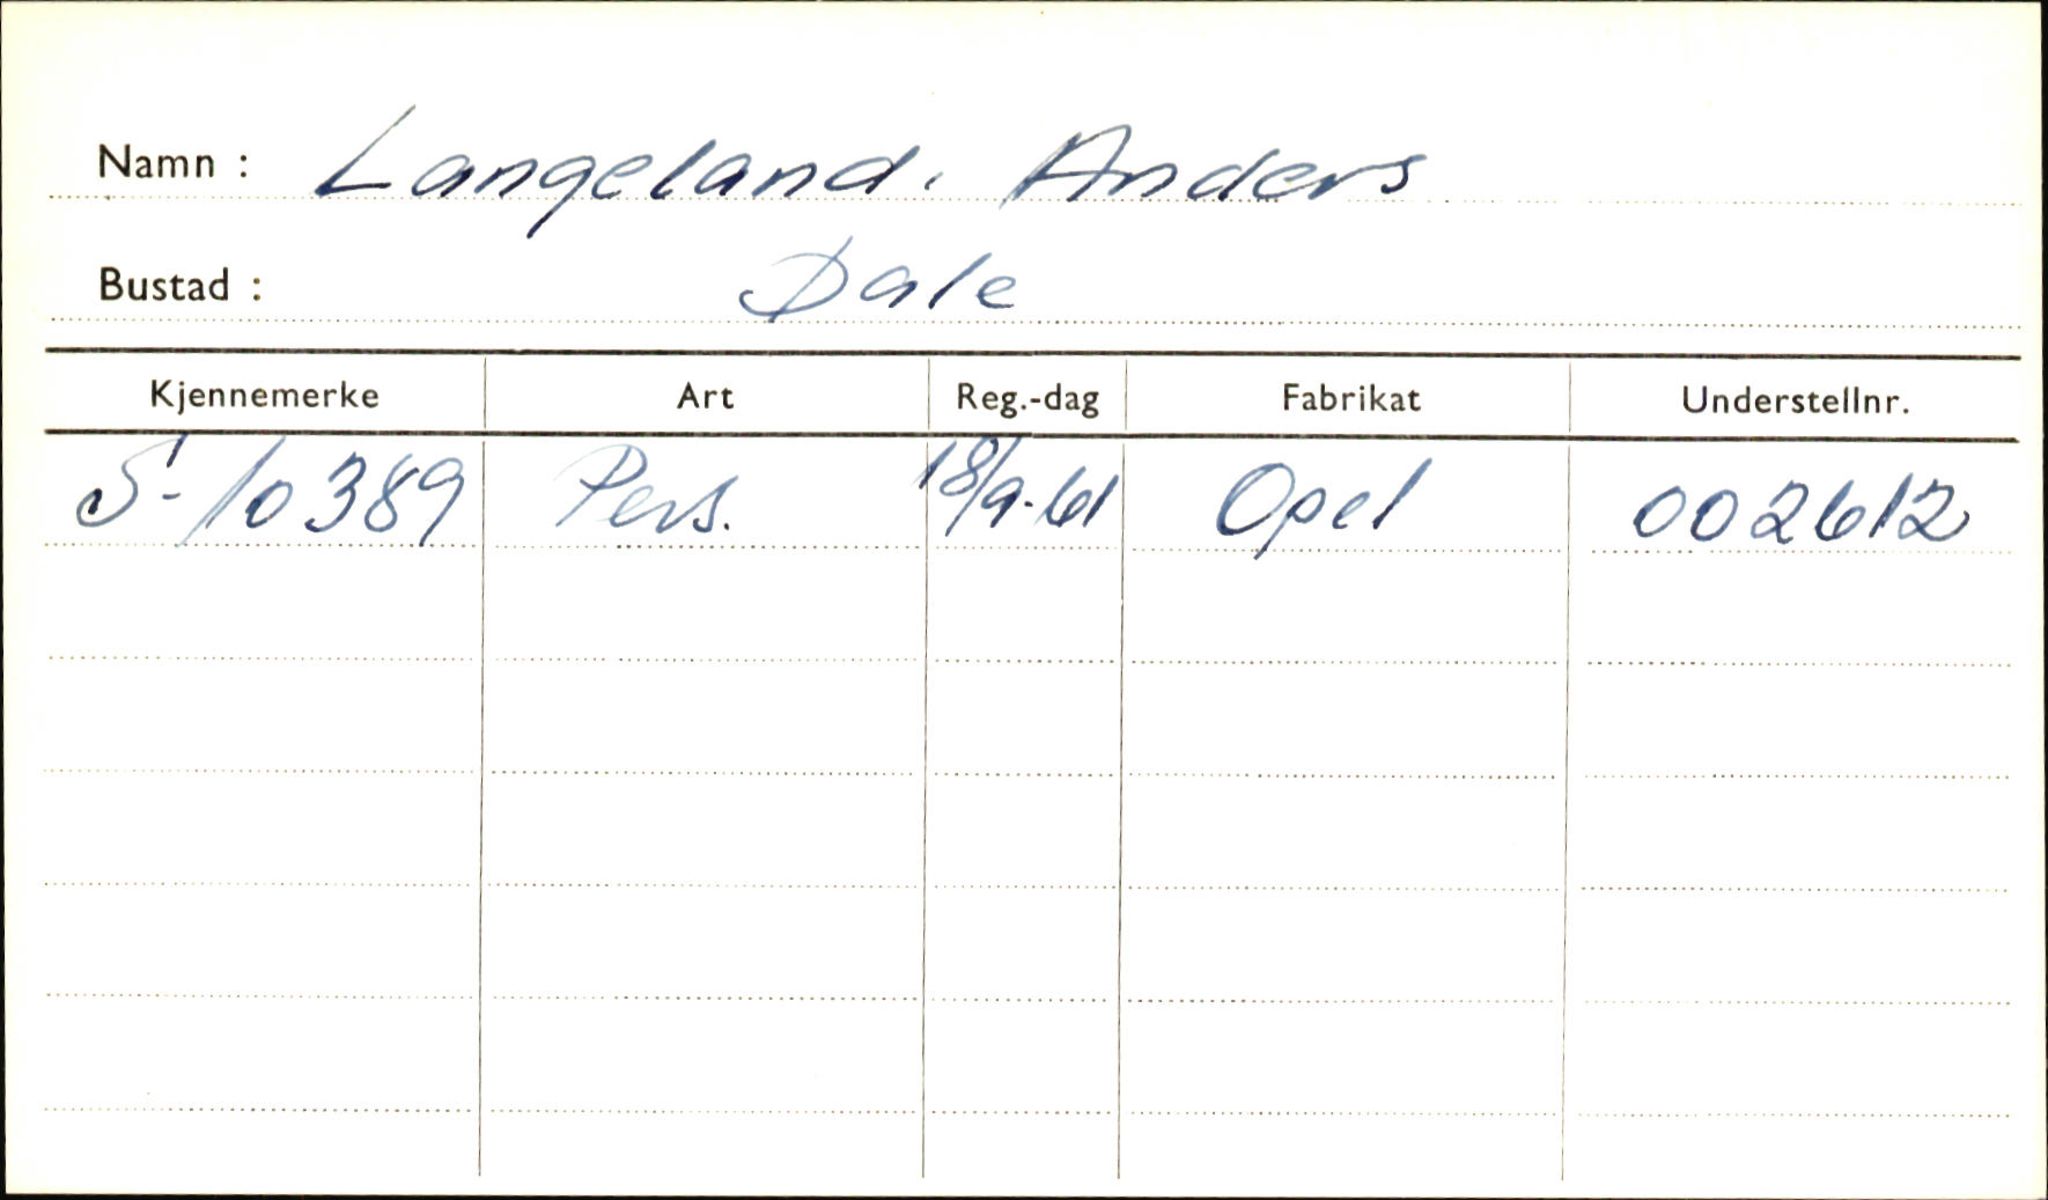 Namn : Langeland, Anders
Bustad : Dale
Kjennemerke Art Reg.-dag Fabrikat Understellnr.
S-10389 Pers. 18/9-61 Opel 002612